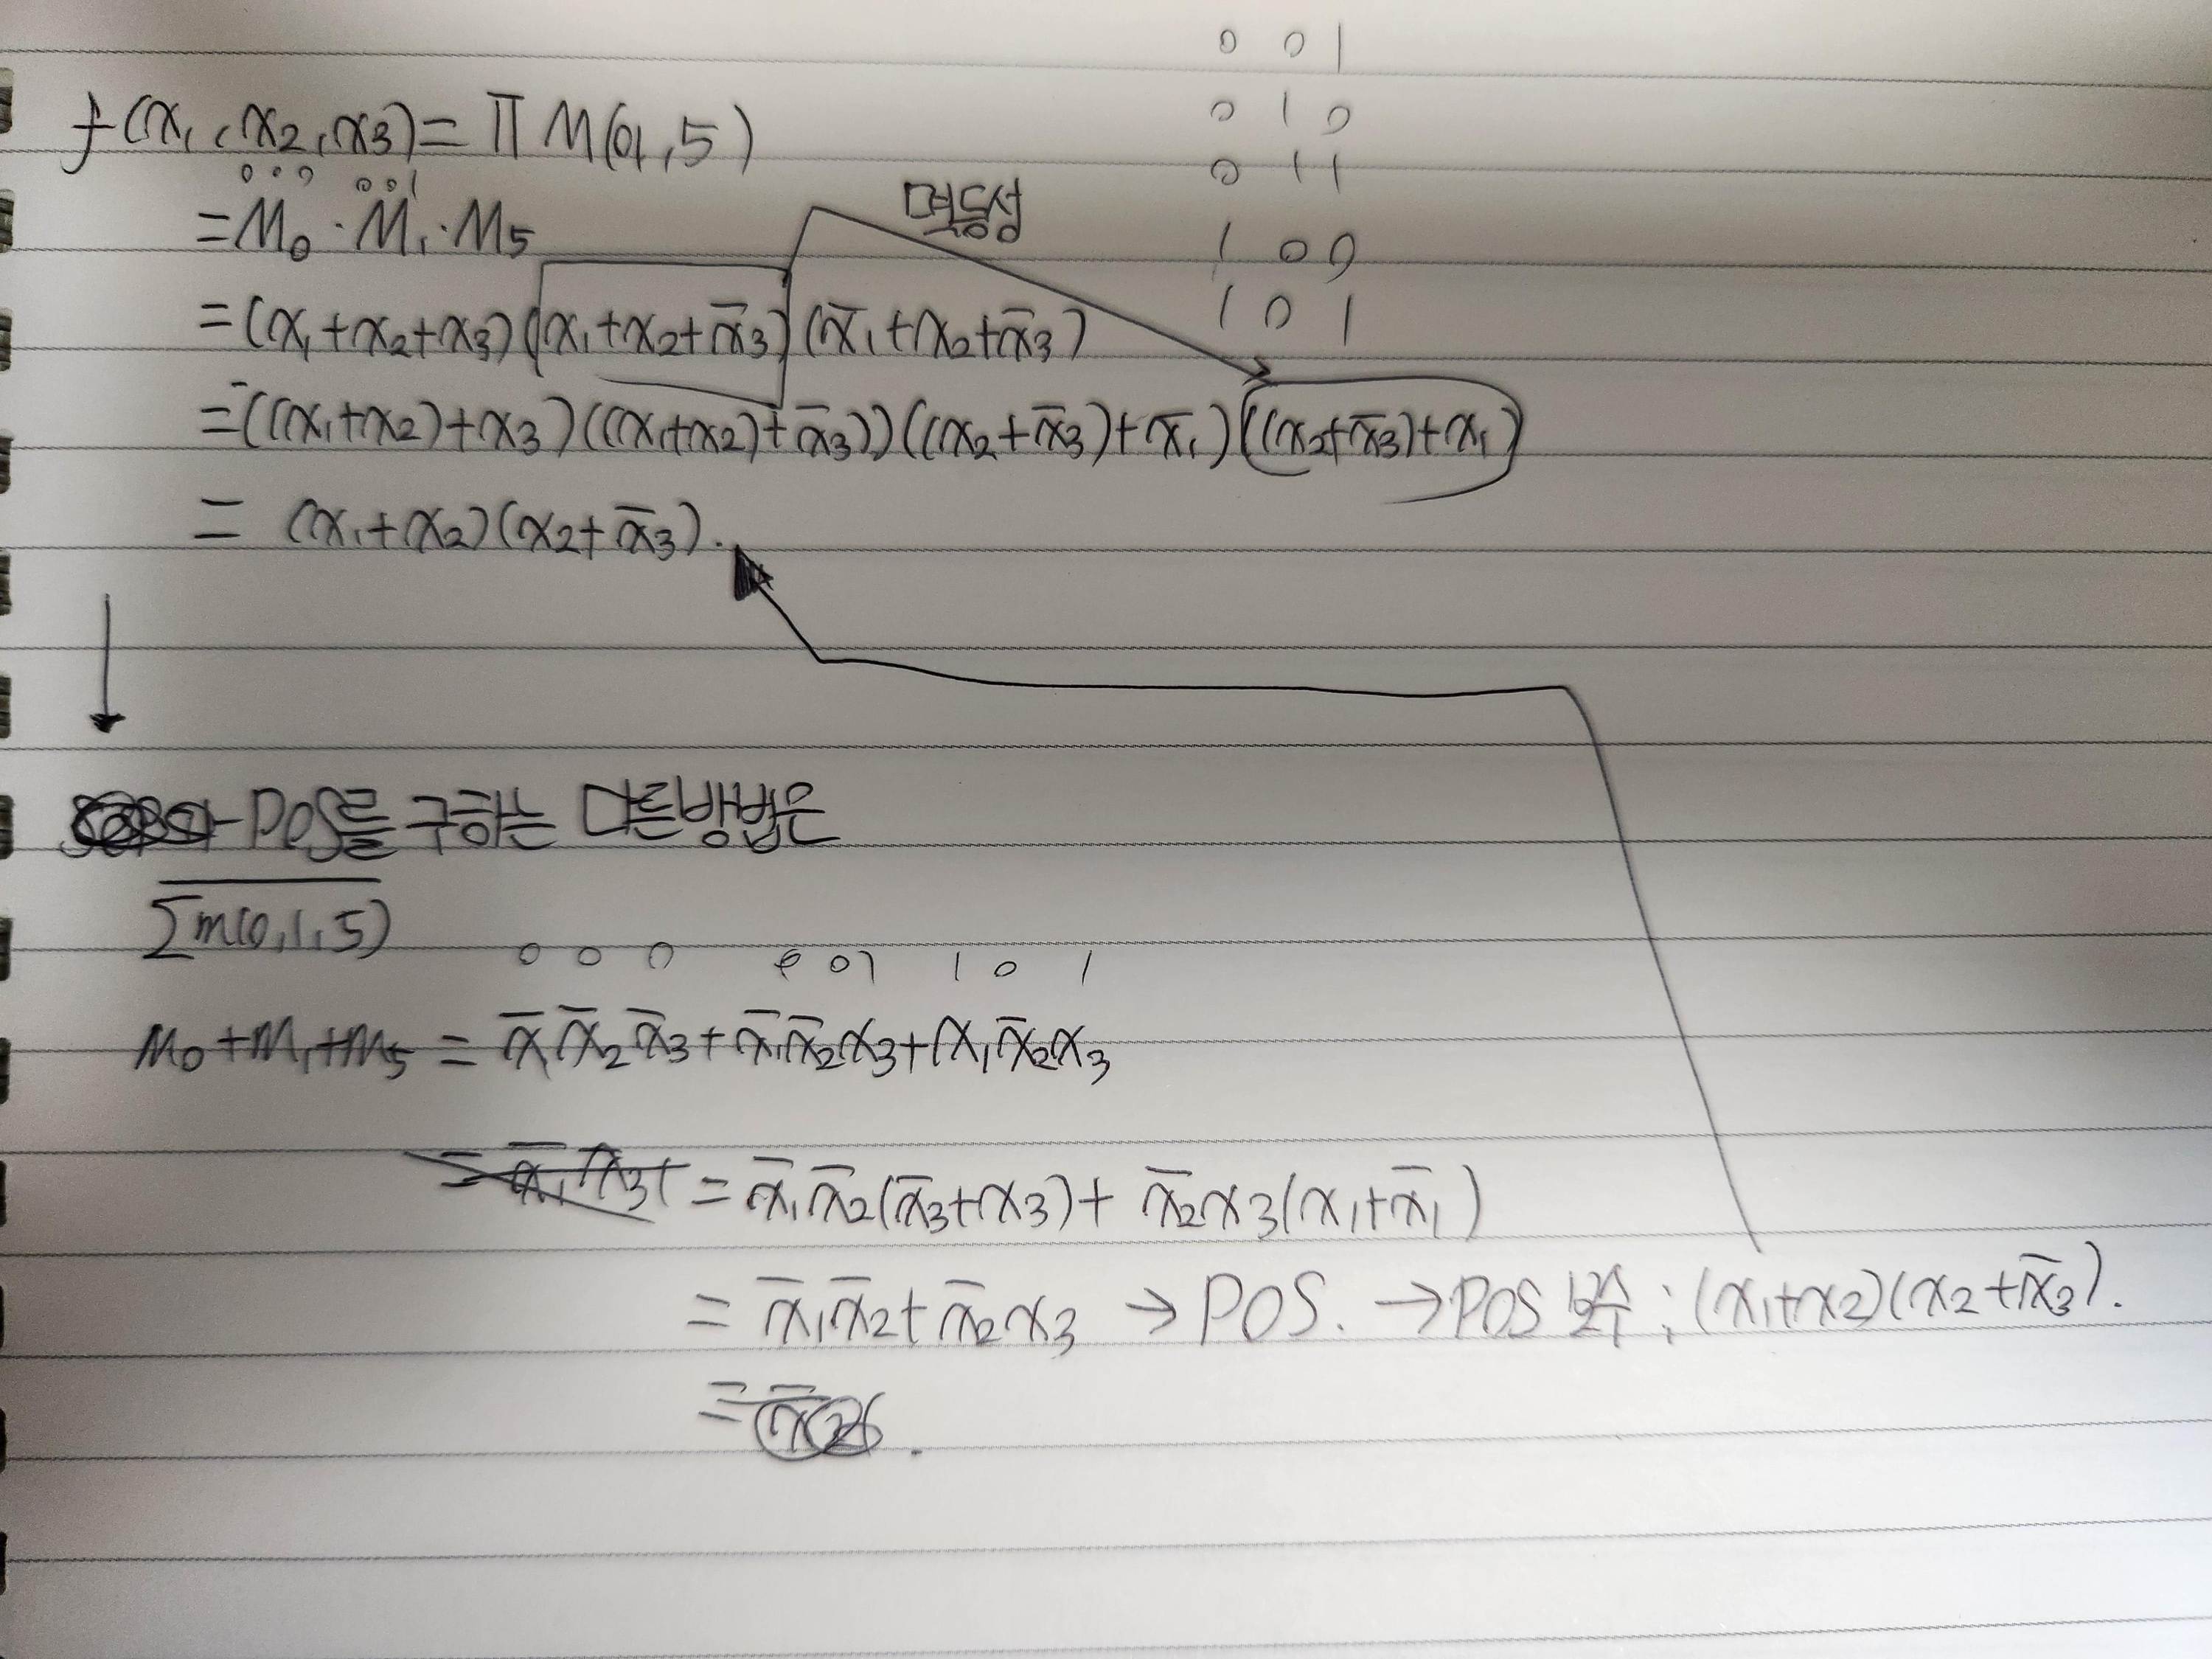 0 0 1
0 1 0
0 1 1
1 0 0
1 0 1
f(x₁, x₂, x₃) = Π M(0,1,5)
0 0 0 0 0 1
= M₀ · M₁ · M₅
멱등성
= (x₁+x₂+x₃)(x₁+x₂+x̄₃)(x̄₁+x₂+x̄₃)
= ((x₁+x₂)+x₃)((x₁+x₂)+x̄₃))((x₂+x̄₃)+x̄₁)((x₂+x̄₃)+x₁)
= (x₁+x₂)(x₂+x̄₃).
POS를 구하는 다른방법은
\overline{Σm(0,1,5)}
0 0 0 0 0 1 1 0 1
m₀+m₁+m₅ = x̄₁x̄₂x̄₃+x̄₁x̄₂x₃+x₁x̄₂x₃
= x̄₁x̄₂(x̄₃+x₃)+x̄₂x₃(x₁+x̄₁)
= x̄₁x̄₂+x̄₂x₃ → POS. → POS 보수 : (x₁+x₂)(x₂+x̄₃).
=